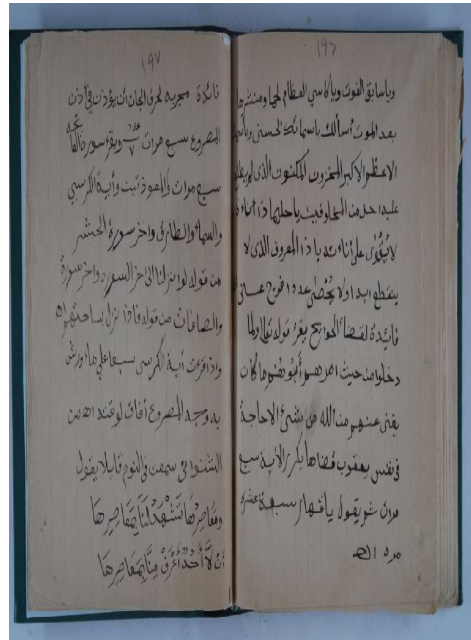 ١٩٦
وياسابق الفوت وياكاسي العظام لحما ومنشرها
بعد الموت أسألك باسمائك الحسنى وباسمك
الاعظم الاكبر المخزون المكنون الذي لم يطلع
عليه احد من المخلوقين ياحليما ذا اناة
لا يقوى على أناته ياذا المعروف الذى لا
ينقطع ابدا ولا يحصى عددا فرج عنا اه
فائدة لقضاء الحوايج يقرء قوله تعالى ولما
دخلوا من حيث امرهم أبوهم ما كان
يغنى عنهم من الله من شئ الا حاجة
فى نفس يعقوب قضاها يكرر الأية سبع
مرات ثم يقول ياقهار سبعة عشر
مره اهـ
١٩٧
فائدة مجربه لحرق الجان ان يؤذن في اذن
المصروع سبع مرات عدد ٧ ويقرء سورة الفاتحه
سبع مرات والمعوذتين وأية الكرسي
والسماء والطارق واخر سورة الحشر
من قوله لو انزلنا الى اخر السوره واخر سورة
والصافات من قوله فاذا نزل بساحتهم اه
واذا قرءت اية الكرسى سبعا على ماء ورش
به وجه المصروع أفاق لوقته اهـ من
سمعت في النوم قايلا يقول